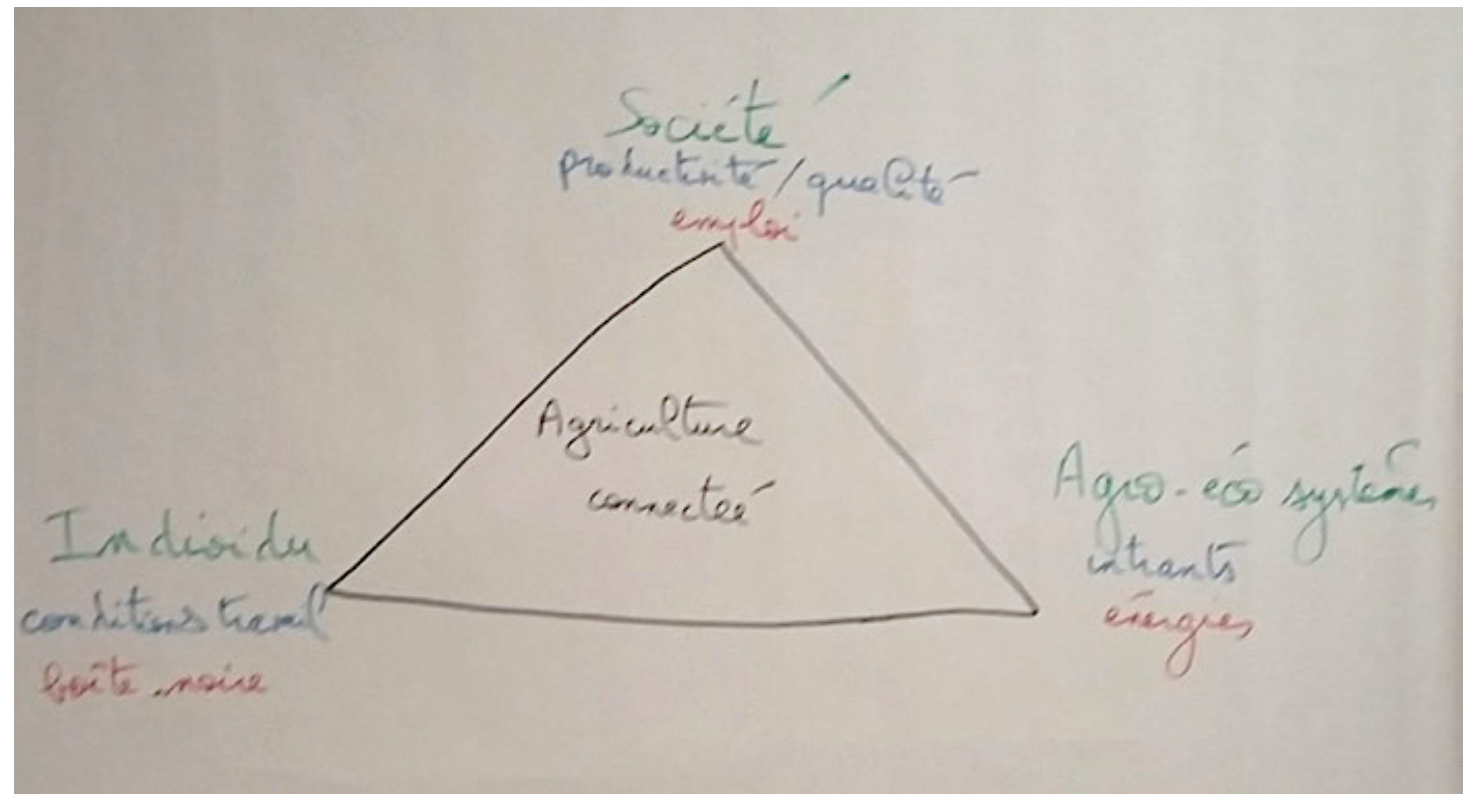 Société
productivité / qualité
emploi
Agriculture
connecteé
Individu
conditions travail
boîte noire
Agro-éco systèmes
intrants
énergies